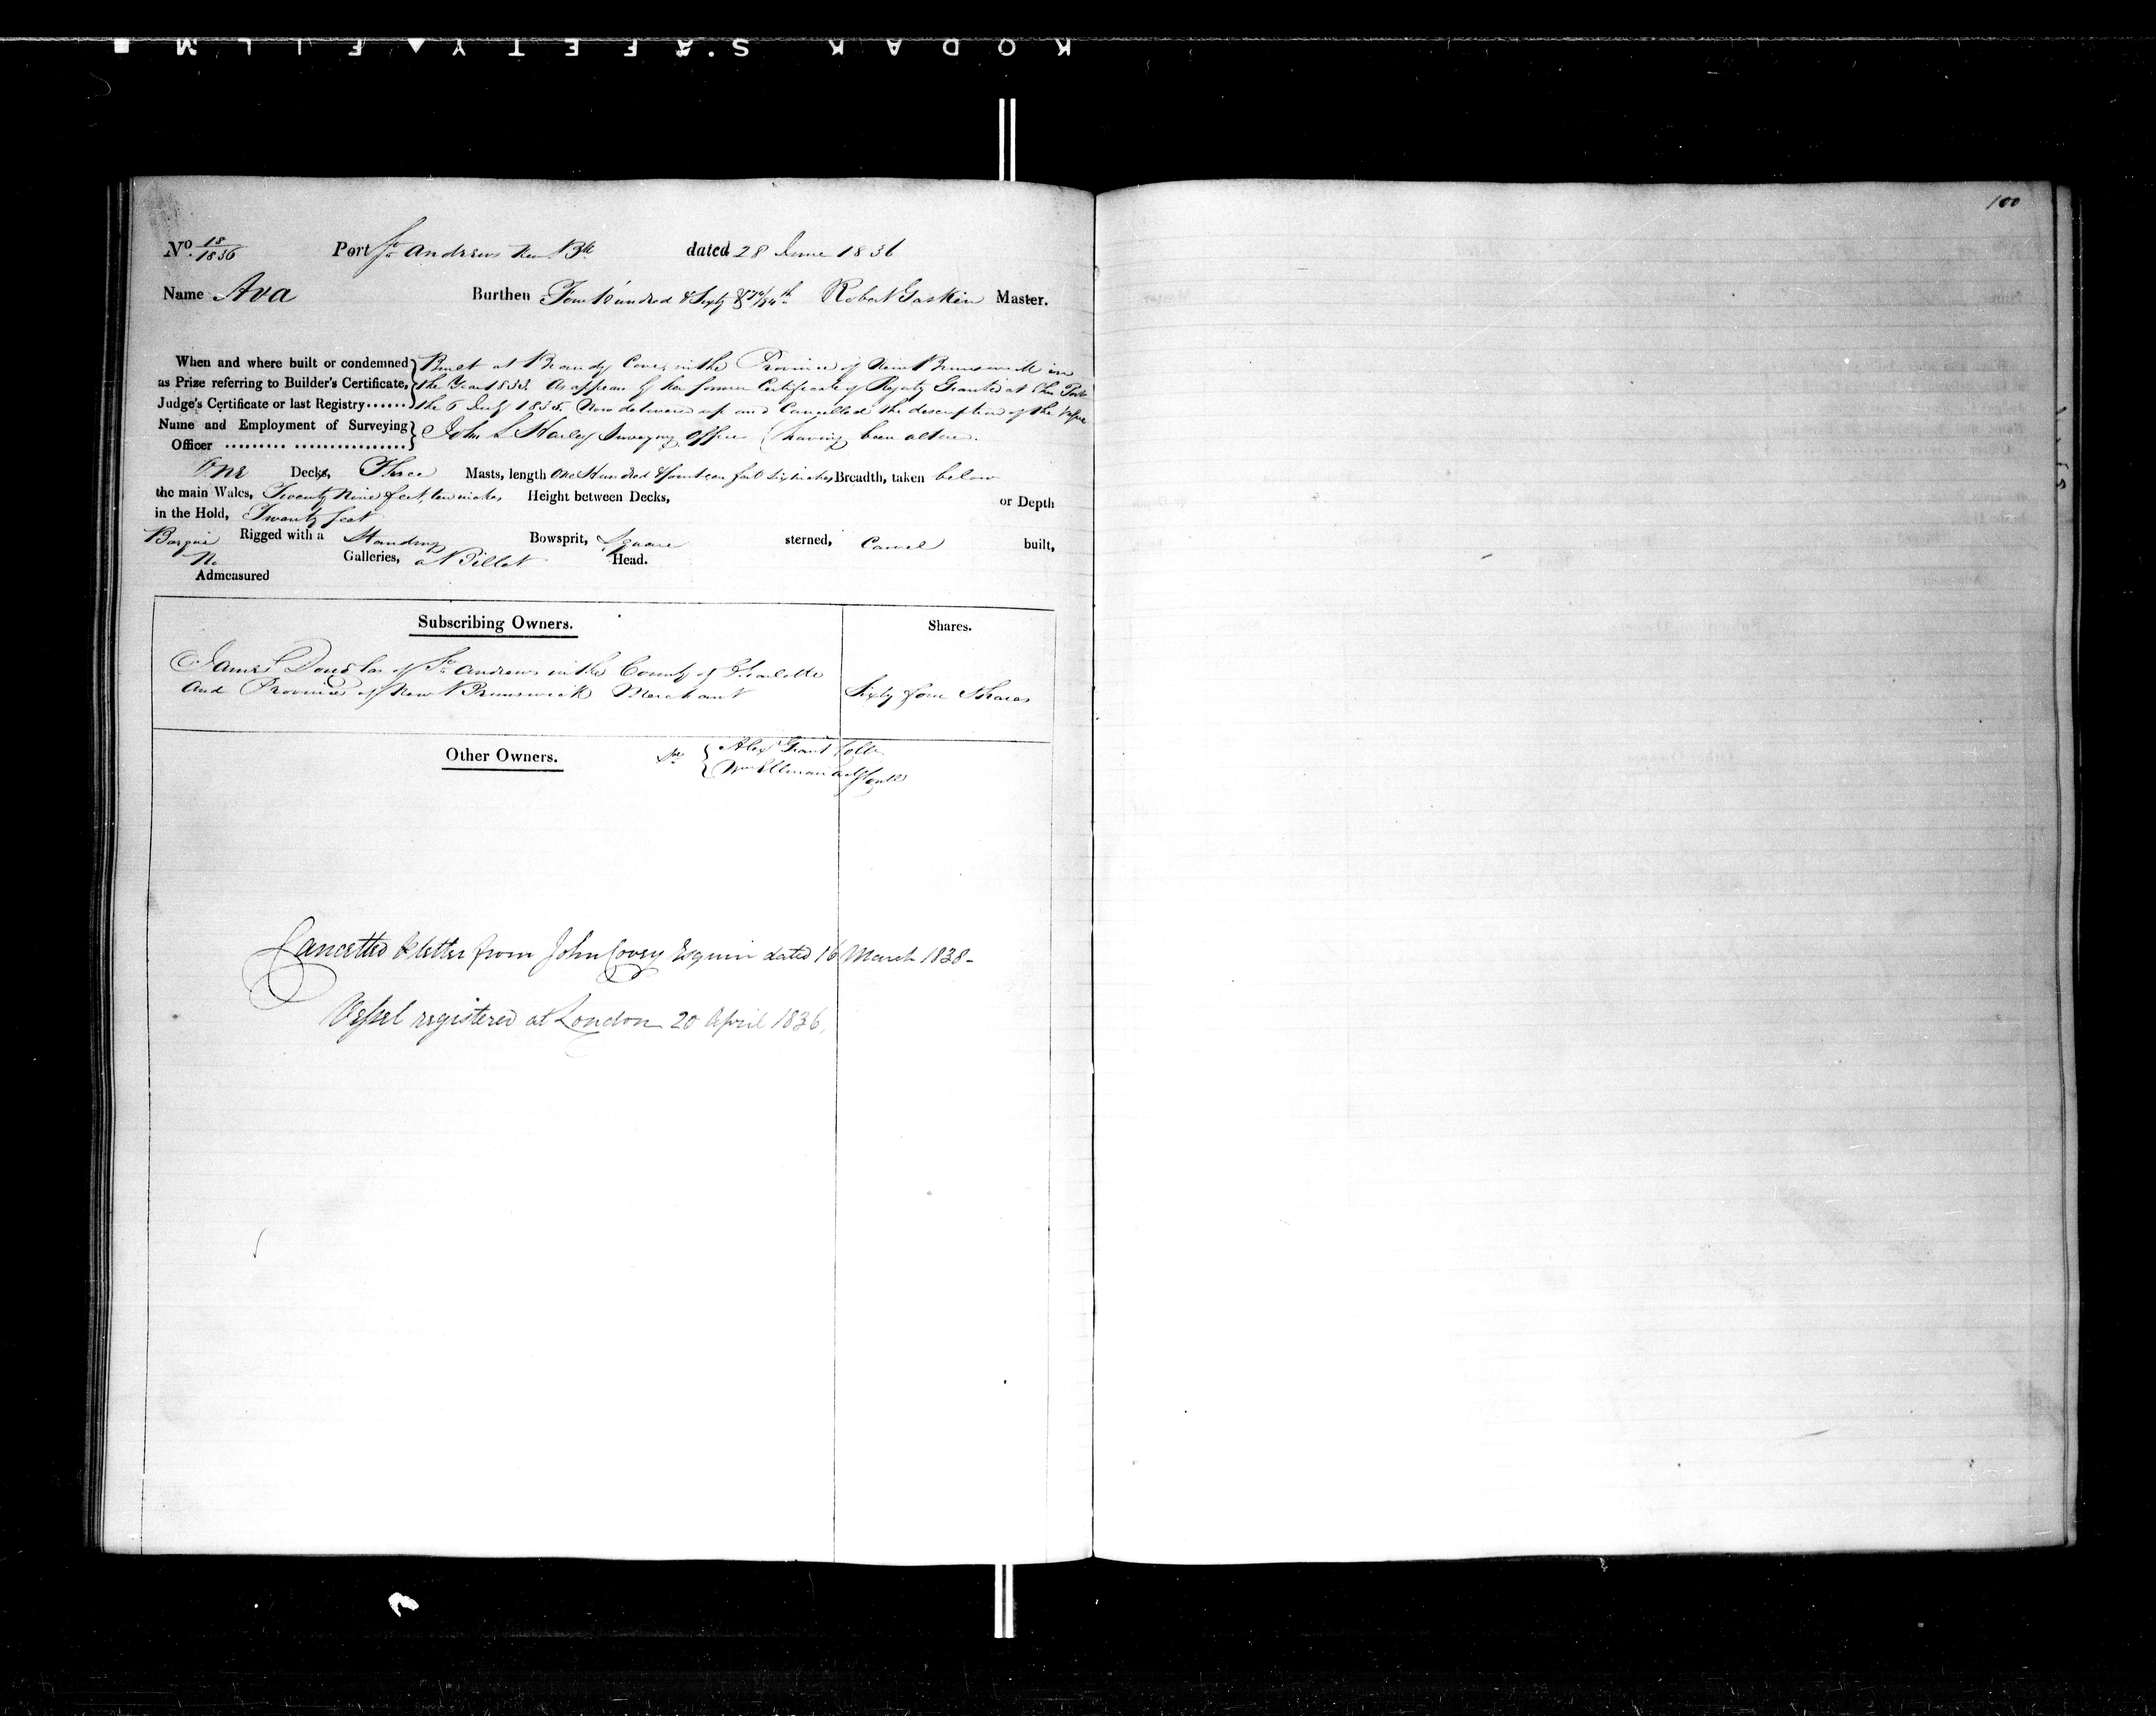 KODAK SAFETY FILM
100
No. 18/1836 Port St. Andrews New Bk dated 28 June 1836
Name Ava Burthen Four Hundred & Sixty & 74/94th Robert Gaskin Master.
When and where built or condemned as Prize referring to Builder's Certificate, Judge's Certificate or last Registry......
Built at Brandy Cove, in the Province of New Brunswick in
the Year 1833. As appears by her former Certificate of Registry Granted at this Port
the 6 July 1835. Now delivered up and Cancelled the description of the Vessel
Name and Employment of Surveying Officer .........................
John L Harley Surveying Officer (having been altered.
One Decks, Three Masts, length One Hundred & fourteen feet six inches Breadth, taken below
the main Wales, Twenty Nine feet, ten inches Height between Decks, or Depth
in the Hold, Twenty feet
Barque Rigged with a Standing Bowsprit, Square sterned, Carvel built,
No Galleries, a Billet Head.
Admeasured
Subscribing Owners. Shares.
James Douglas of St. Andrews in the County of Charlotte
and Province of New Brunswick Merchant Sixty four Shares
Other Owners.
Alexr Grant Collr
Wm Ellman
Cancelled letter from John Covey Esquire dated 16 March 1838-
Vessel registered at London 20 April 1836,